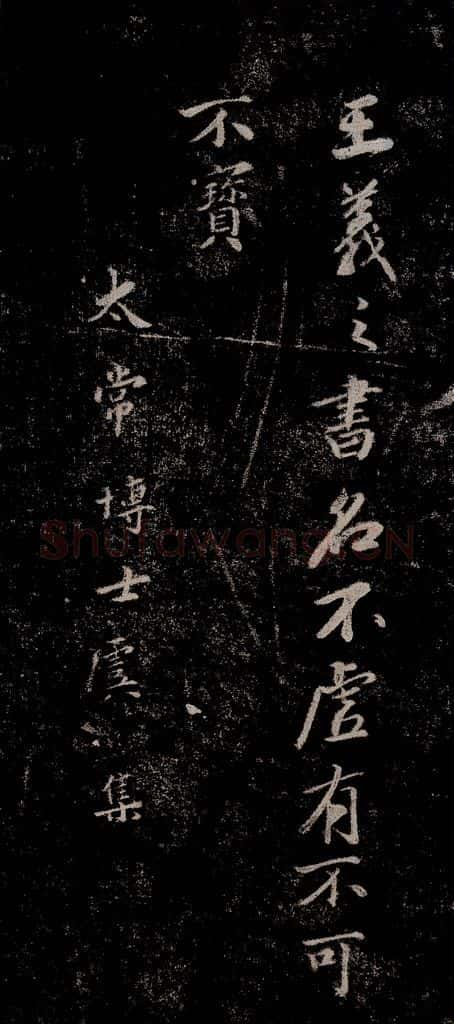 王羲之書名不虛有不可
不寶
太常博士虞集
Shufawang.CN